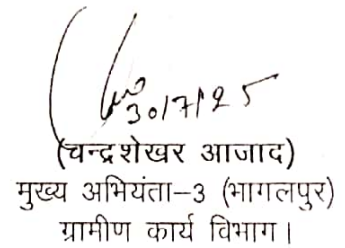 30/7/25
(चन्द्रशेखर आजाद)
मुख्य अभियंता-3 (भागलपुर)
ग्रामीण कार्य विभाग।